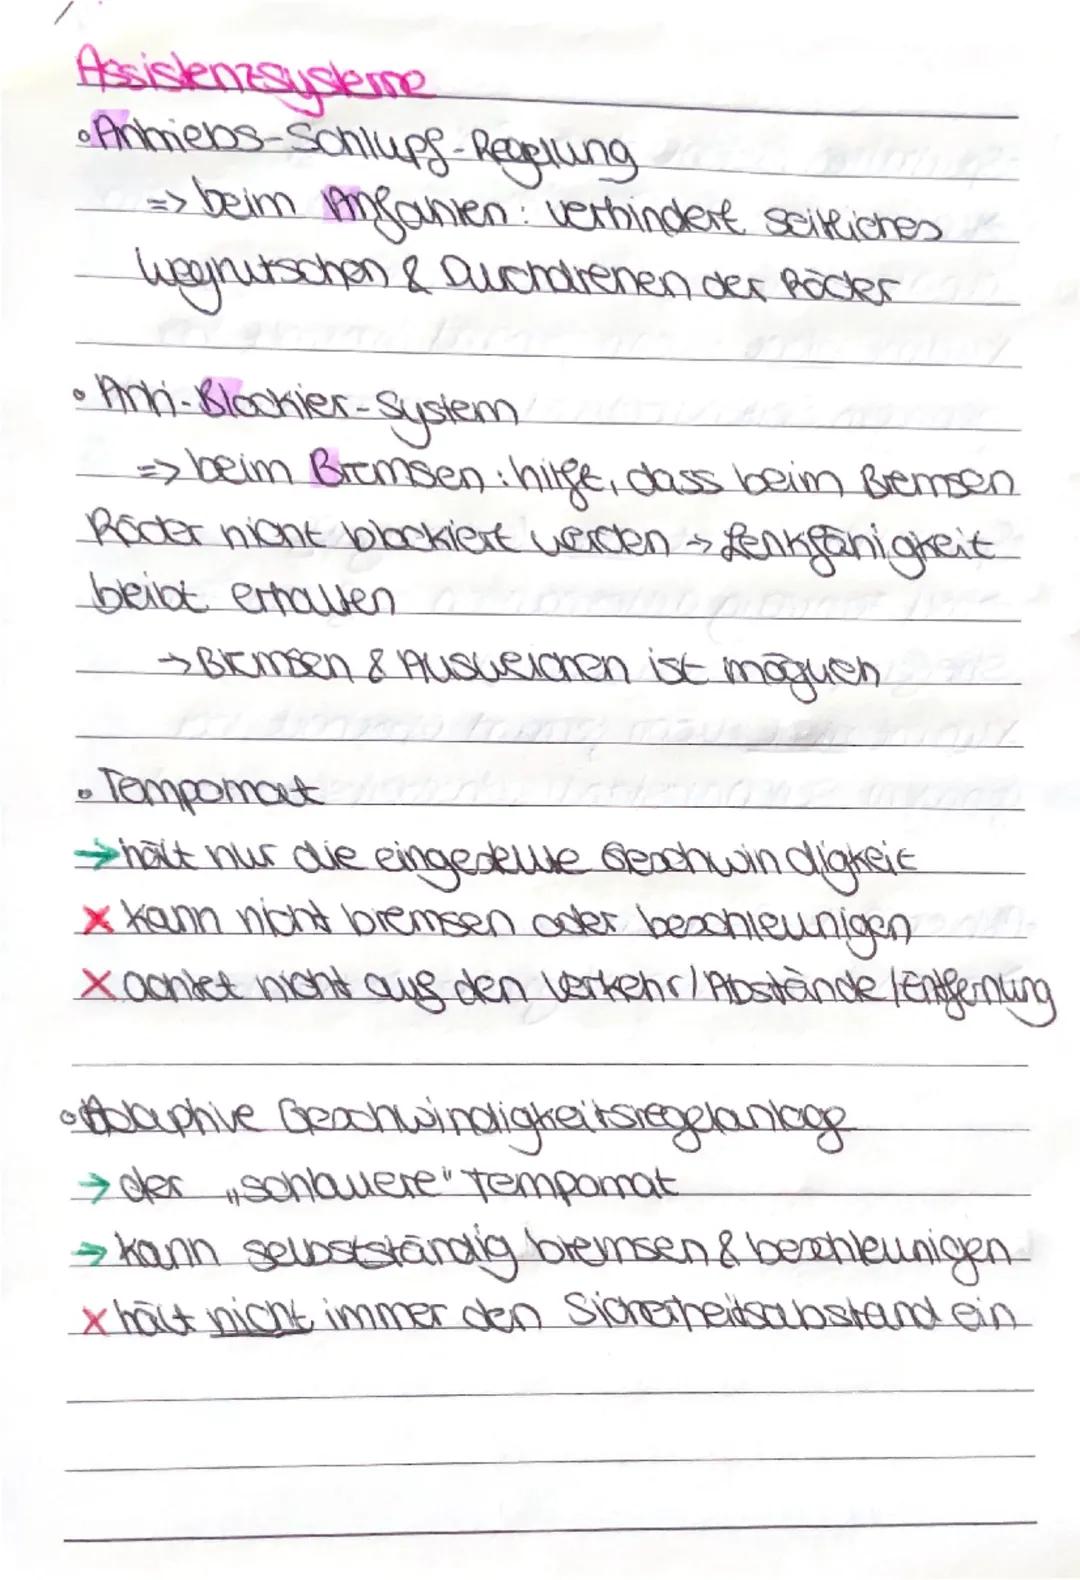 Assistenzsysteme
• Antriebs-Schlupf-Regelung
=> beim Anfahren: verhindert seitliches
Wegrutschen & Durchdrehen der Räder
• Anti-Blockier-System
=> beim Bremsen: hilft, dass beim Bremsen
Räder nicht blockiert werden → Lenkfähigkeit
beibt erhalten
→ Bremsen & Ausweichen ist möglich
• Tempomat
→ hält nur die eingestellte Geschwindigkeit
x kann nicht bremsen oder beschleunigen
x achtet nicht auf den Verkehr/Abstände/Entfernung
• Adaptive Geschwindigkeitsregelanlage
→ der „schlauere" Tempomat
→ kann selbstständig bremsen & beschleunigen
x hält nicht immer den Sicherheitsabstand ein